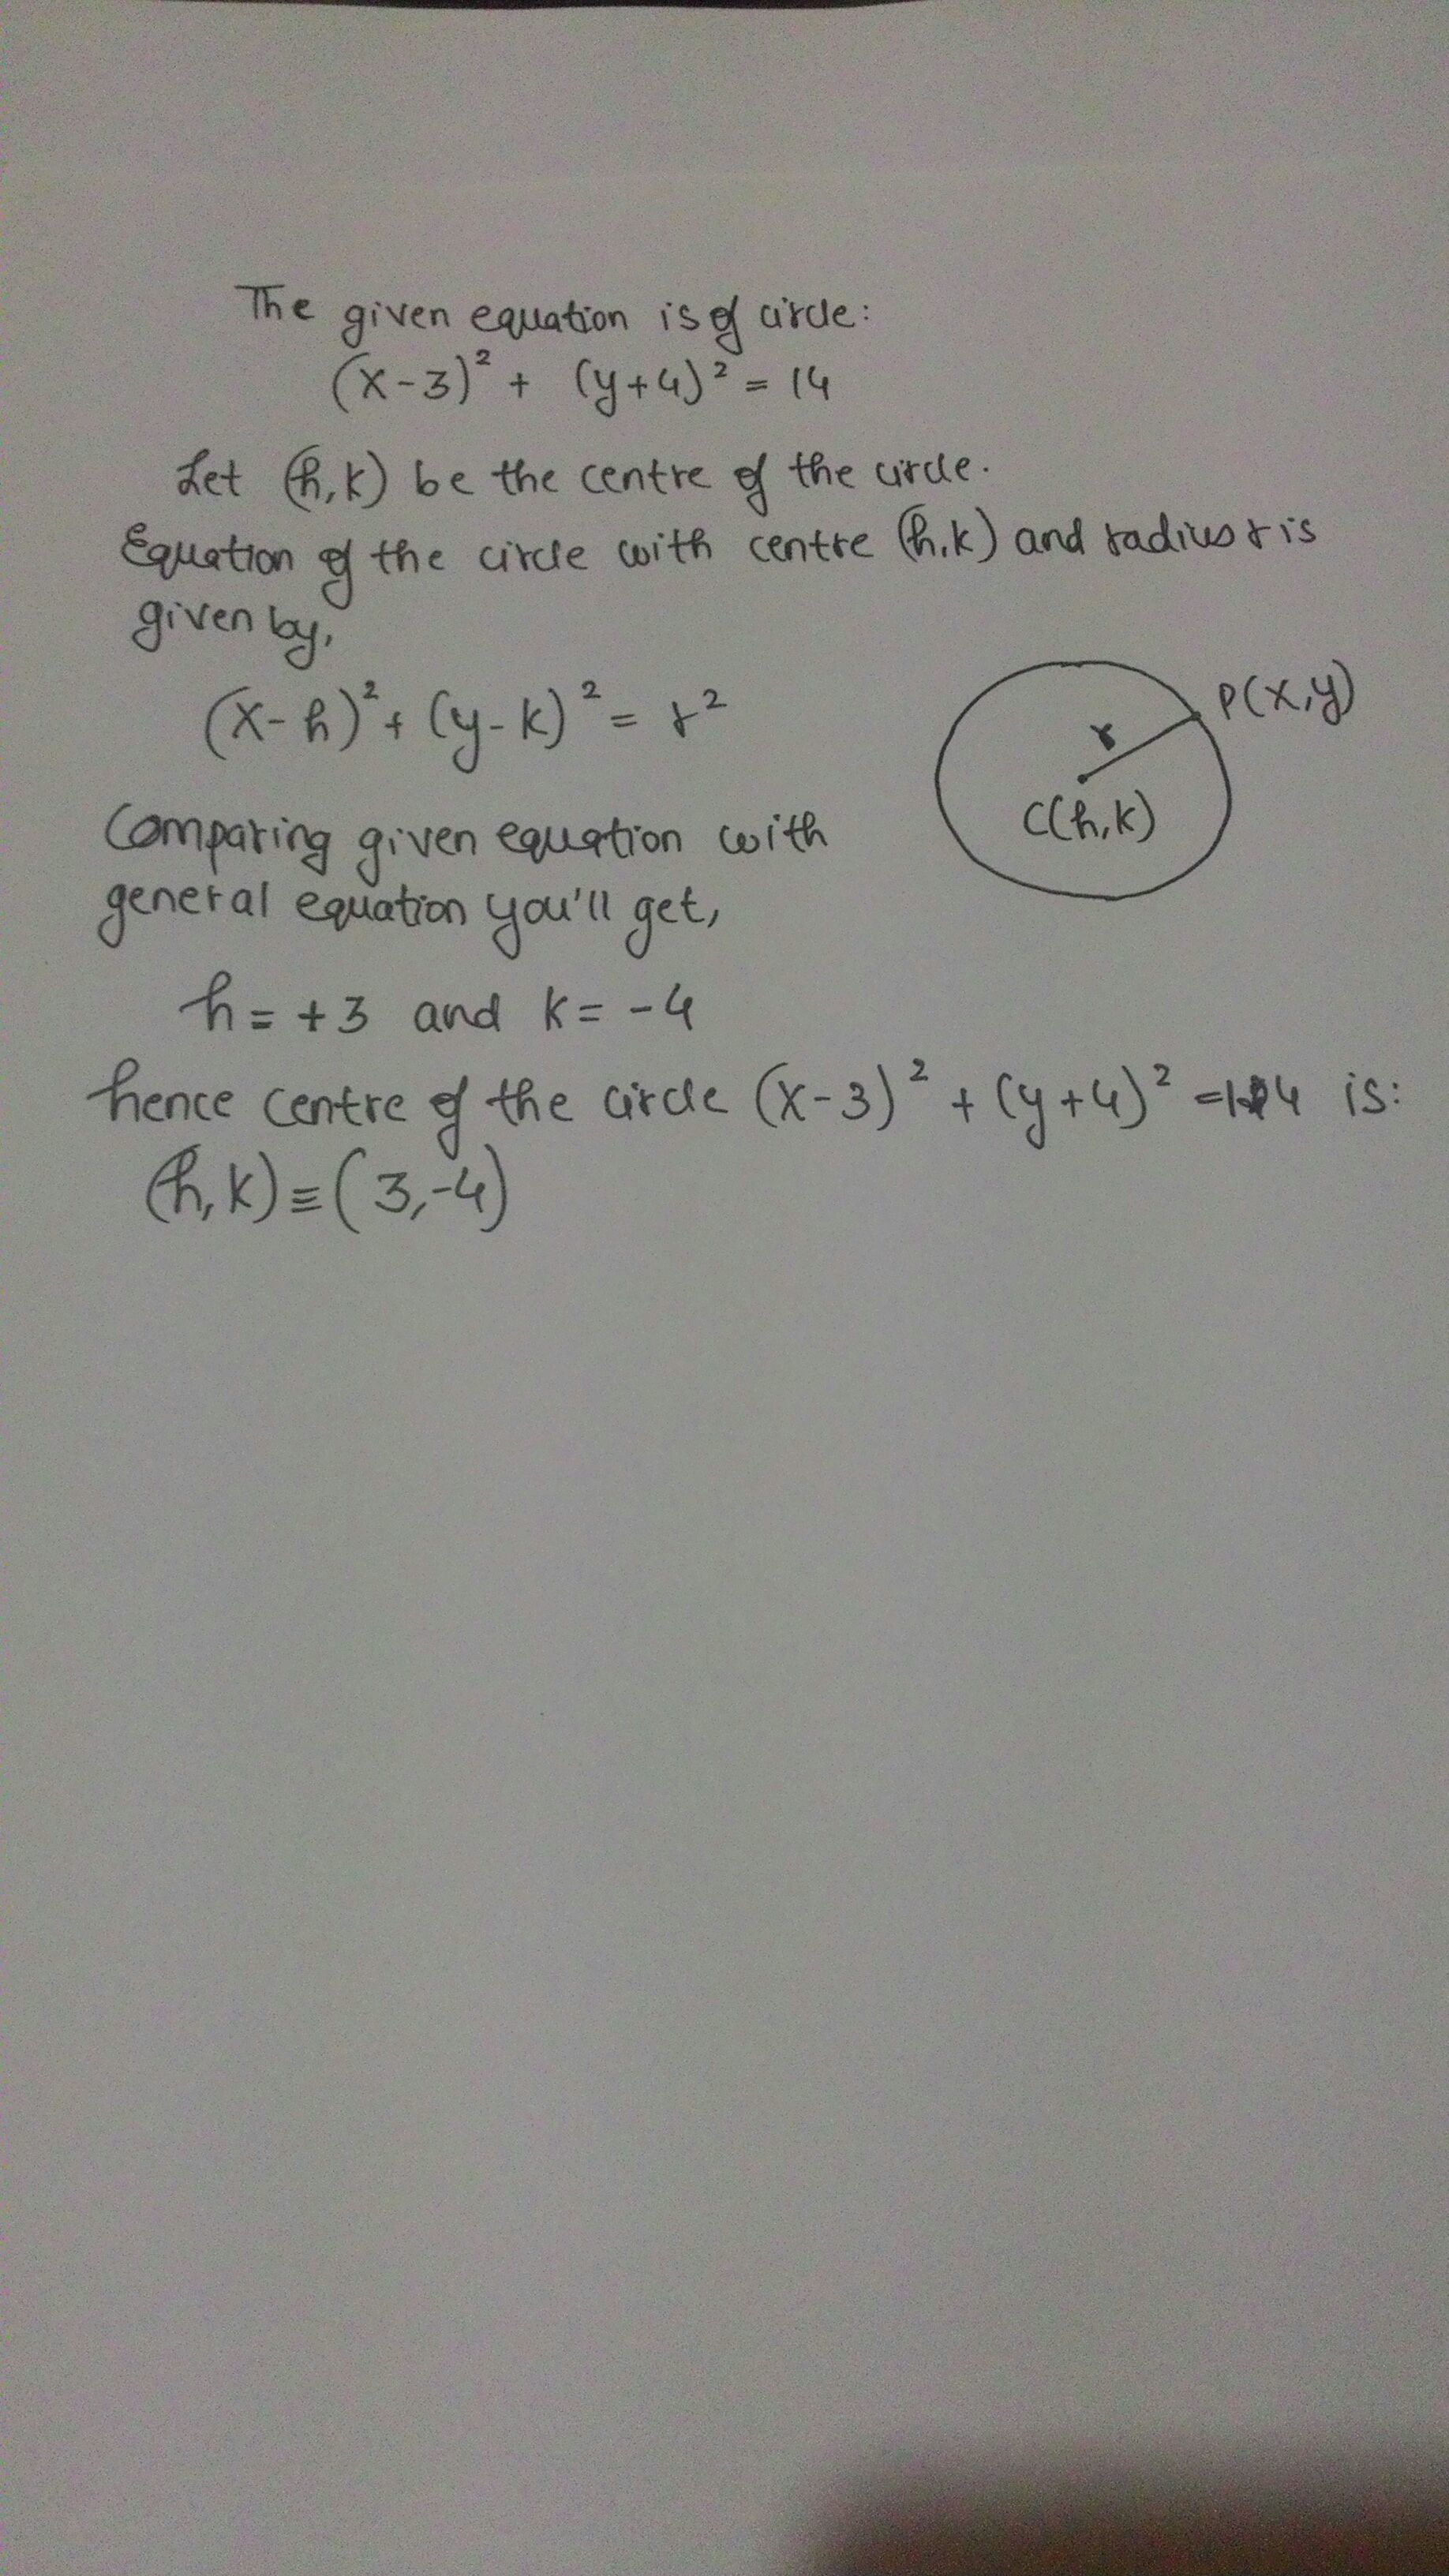 The given equation is of circle:
(x-3)² + (y+4)² = 14
Let (h,k) be the centre of the circle.
Equation of the circle with centre (h,k) and radius r is
given by,
(x-h)² + (y-k)² = r²
P(x,y)
r
C(h,k)
Comparing given equation with
general equation you'll get,
h = +3 and k = -4
hence centre of the circle (x-3)² + (y+4)² = 14 is:
(h,k) ≡ (3,-4)